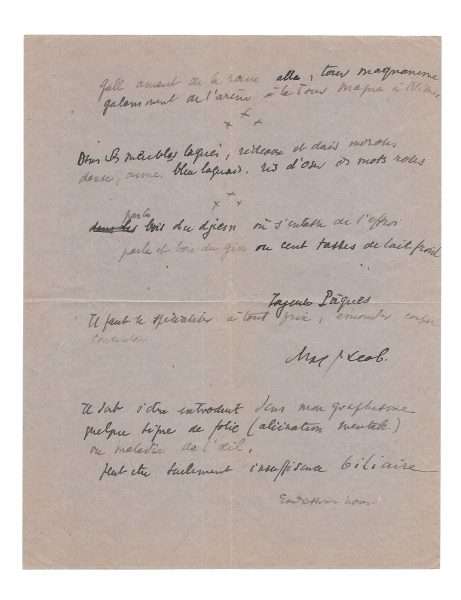 Gall amant de la reine alla, tour magnanime
galamment de l'arène à la Tour Magne à Nîmes
x x x
Dans les meubles laqués, rideaux et dais moroses
danse, aime, bleu laquais, ris d'oser des mots roses
x x x
parle
bois du djinn où s'entasse de l'effroi
parle et bois du gin ou cent tasses de lait froid
Joyeuses Pâques
Il faut se spécialiser à tout prix,
Max Jacob.
Il doit s'être introduit dans mon graphisme
quelque signe de folie (aliénation mentale)
ou maladie de l'œil.
Peut être seulement insuffisance biliaire